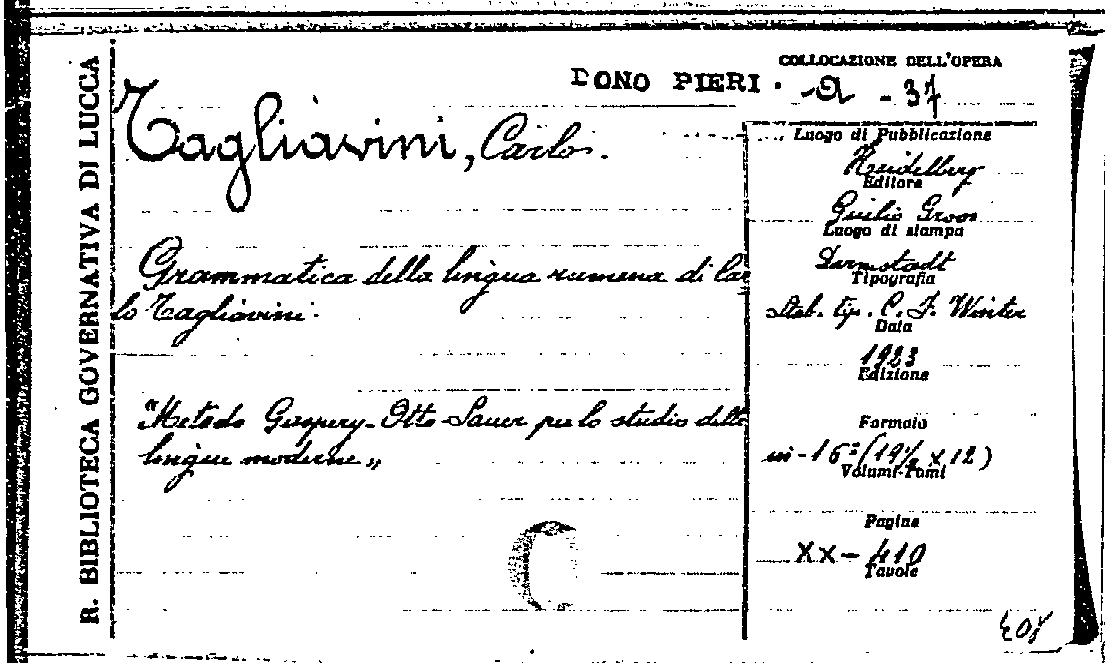 R. BIBLIOTECA GOVERNATIVA DI LUCCA
DONO PIERI.
COLLOCAZIONE DELL'OPERA
37
Tagliavini, Carlo.
Luogo di Pubblicazione
Heidelberg
Editore
Giulio Groos
Luogo di stampa
Darmstadt
Tipografia
Stab. tip. C. F. Winter
Data
1923
Edizione
Formato
in-16° (19½ x 12)
Volumi-Tomi
Pagine
XX - 410
Tavole
Grammatica della lingua rumena di Car
lo Tagliavini.
"Metodo Gaspey-Otto-Sauer per lo studio delle
lingue moderne„